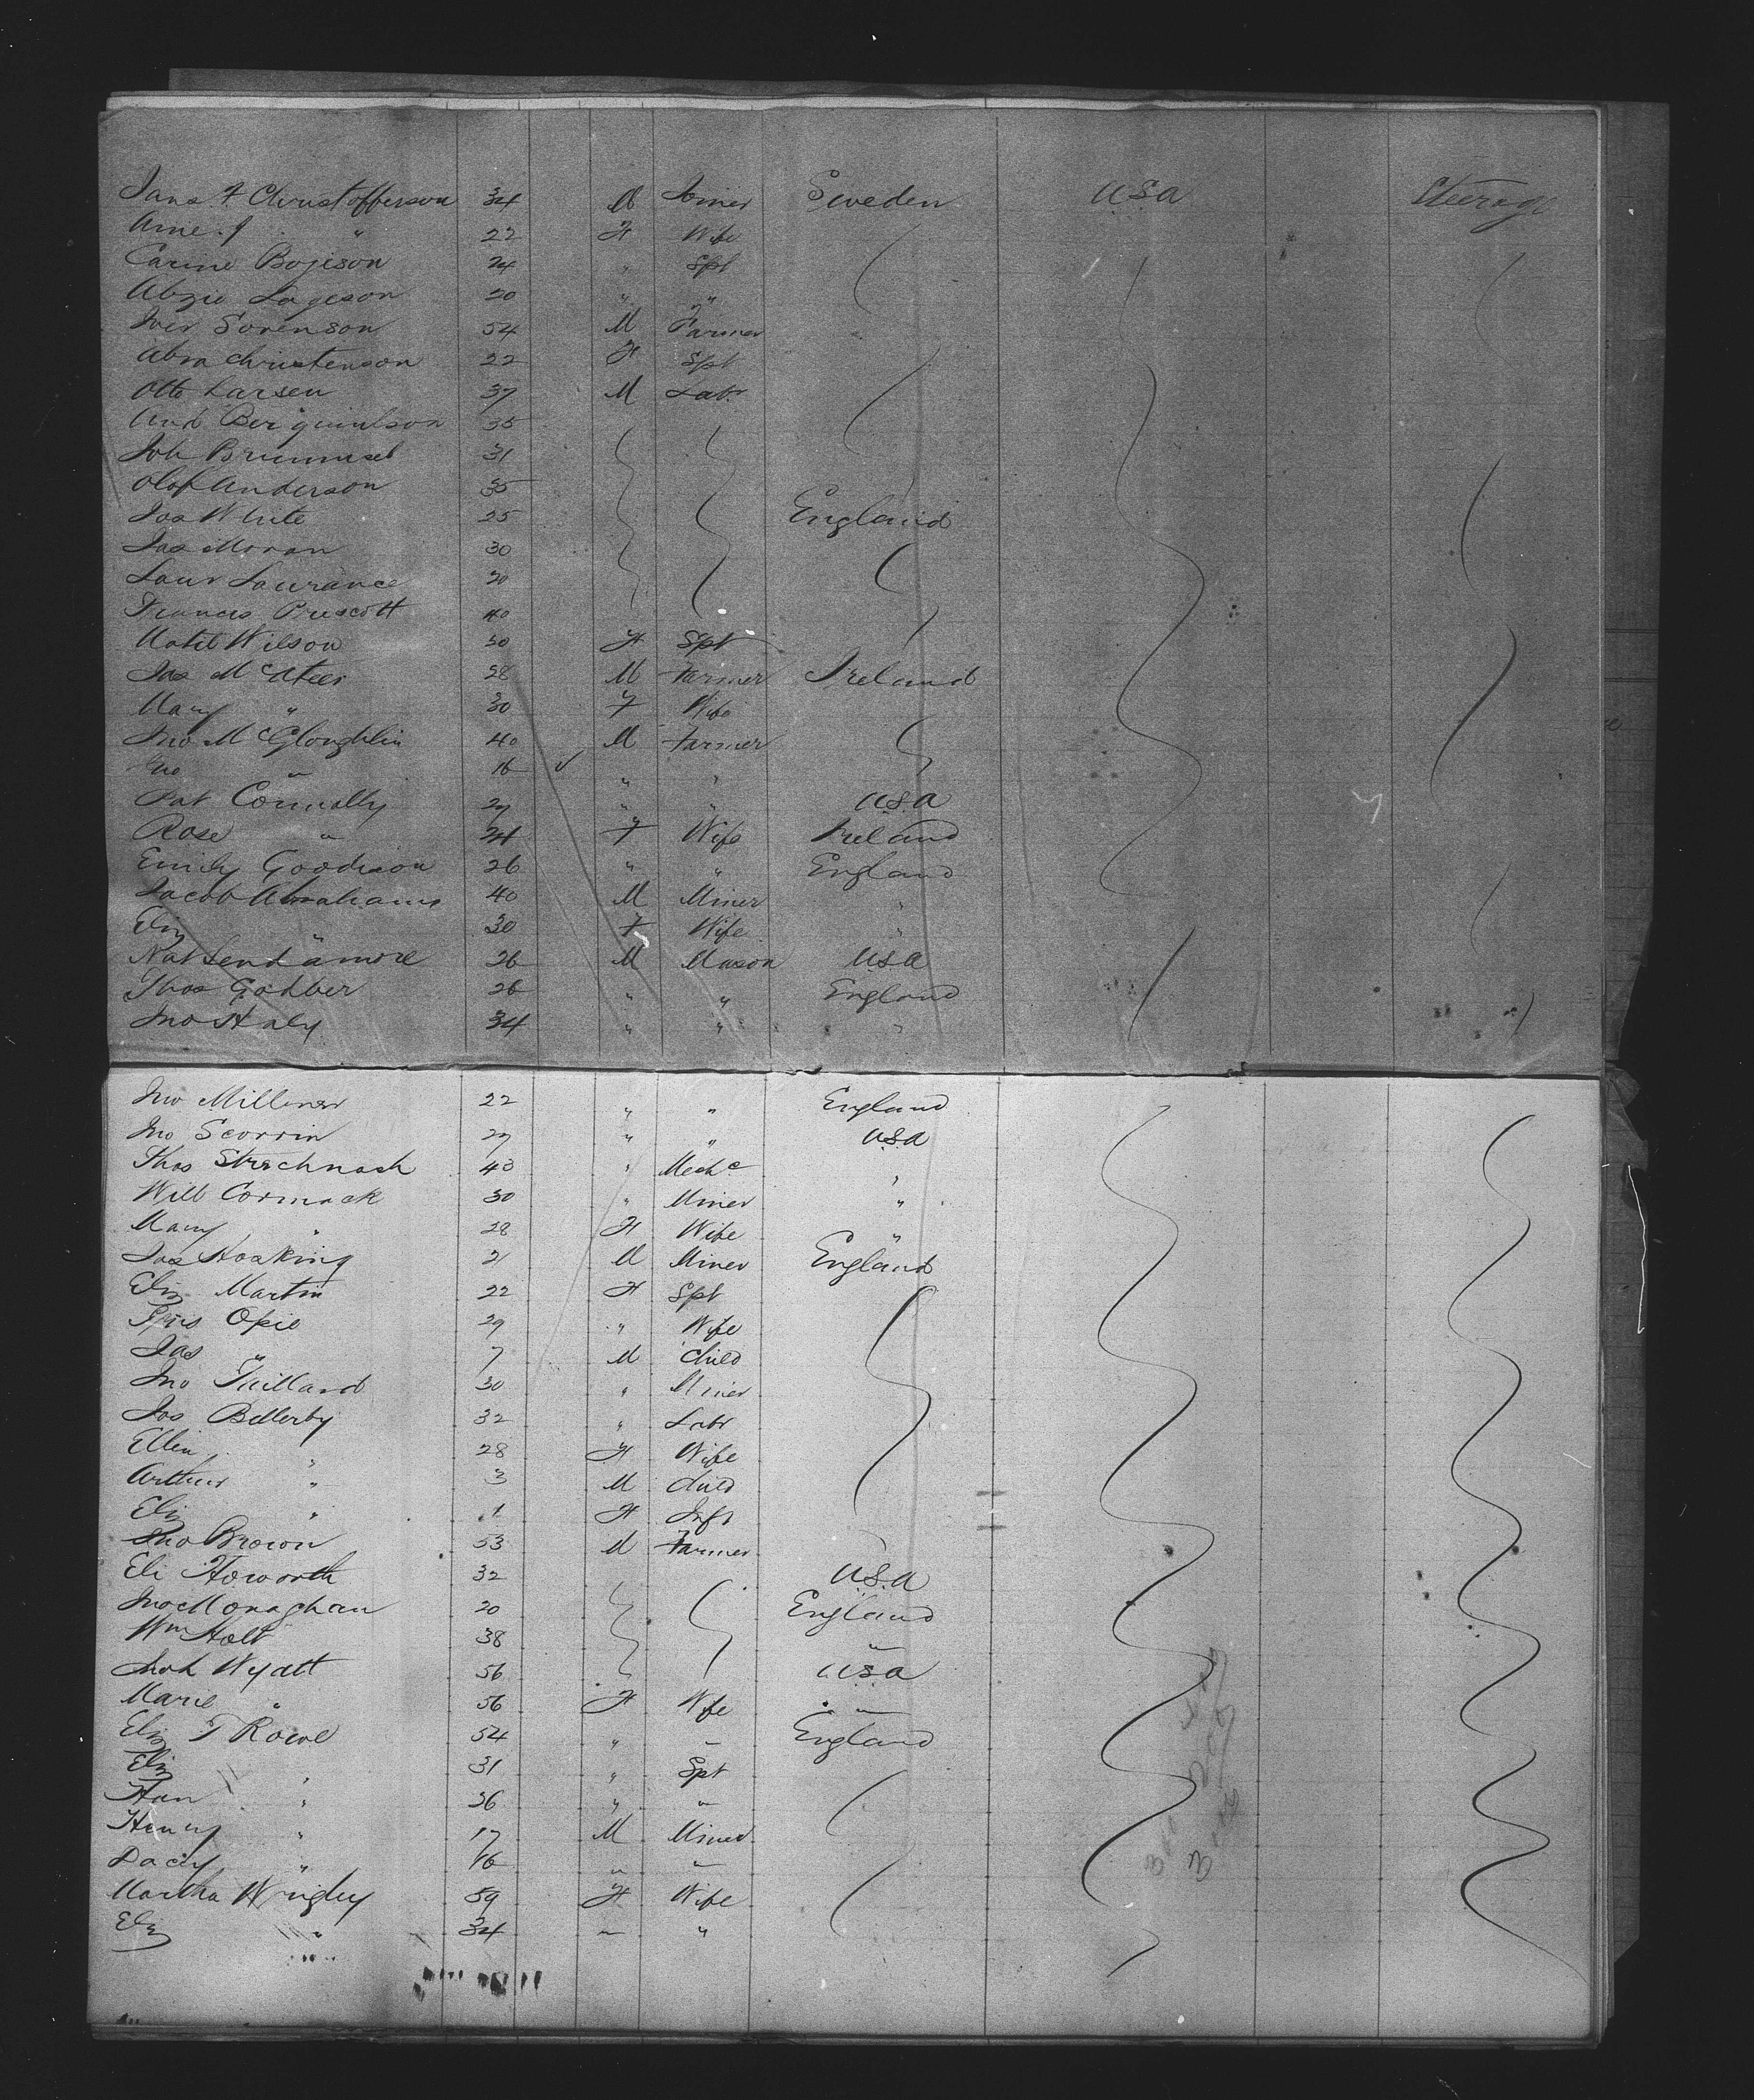 Jans A Christofferson 34 M Joiner Sweden USA Steerage
Arne J " 22 F Wife
Carine Bojeson 24 " Spt
Abzie Lageson 20 " "
Iver Sorenson 54 M Farmer "
Abra Christenson 22 F Spt
Otto Larsen 37 M Lab
And 35
Joh 31
Olof Anderson 35
Jos White 25 England
Jas Moran 30
Laur Laurance 20
Francis Prescott 40
Matil Wilson 30 F Spt
Jas McAteer 28 M Farmer Ireland
Mary " 30 F Wife
Jno McGloughlin 40 M Farmer
Jno " 16 " "
Pat Connolly 27 " " USA
Rose " 24 F Wife Ireland
Emily Goodison 26 " " England
Jacob Abrahams 40 M Miner "
Eliz " 30 F Wife "
Nat Sendamore 26 M Mason USA
Thos Godber 26 " " England
Jno Haly 34 " " "
Jno Milliner 22 " " England
Jno Scorrin 27 " " USA
Thos 40 " Mechc "
Will Cormack 30 " Miner "
Mary " 28 F Wife "
Jas Hosking 21 M Miner England
Eliz Martin 22 F Spt
Opie 29 " Wife
Jas " 7 M Child
Jno 30 " Miner
Jos Bellerby 32 " Labr
Ellen " 28 F Wife
Arthur " 3 M Child
Eliz " 1 F Inft
Jno Brown 53 M Farmer
Eli Howorth 32 USA
Jno Monaghan 20 England
Wm Holt 38 "
Wyatt 56 USA
Marie " 56 F Wife "
Eliz T Rowe 54 " " England
Eliz " 31 " Spt
Han " 36 " "
Henry " 17 M Miner
" 16 " "
Martha Wrigley 59 F Wife
Eliz " 34 " "